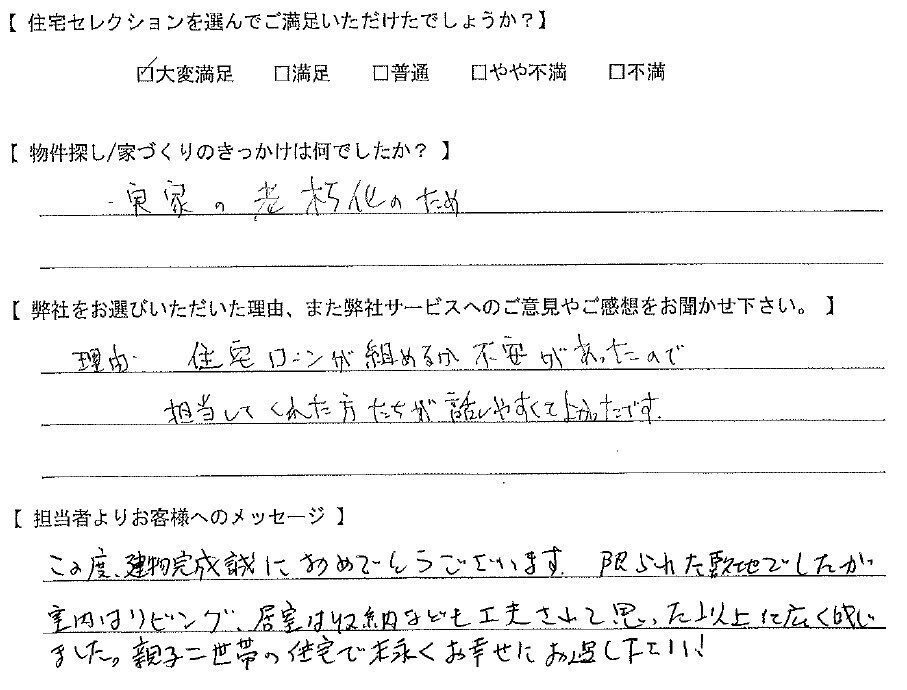 【 住宅セレクションを選んでご満足いただけたでしょうか？】
☑大変満足 □満足 □普通 □やや不満 □不満
【 物件探し/家づくりのきっかけは何でしたか？ 】
・実家の老朽化のため
【 弊社をお選びいただいた理由、また弊社サービスへのご意見やご感想をお聞かせ下さい。 】
理由・ 住宅ローンが組めるか不安があったので
担当してくれた方たちが話しやすくてよかったです。
【 担当者よりお客様へのメッセージ 】
この度、建物完成誠におめでとうございます。限られた敷地でしたが
室内はリビング、居室は収納なども工夫されて思った以上に広く感じ
ました。親子二世帯の住宅で末永くお幸せにお過し下さい！